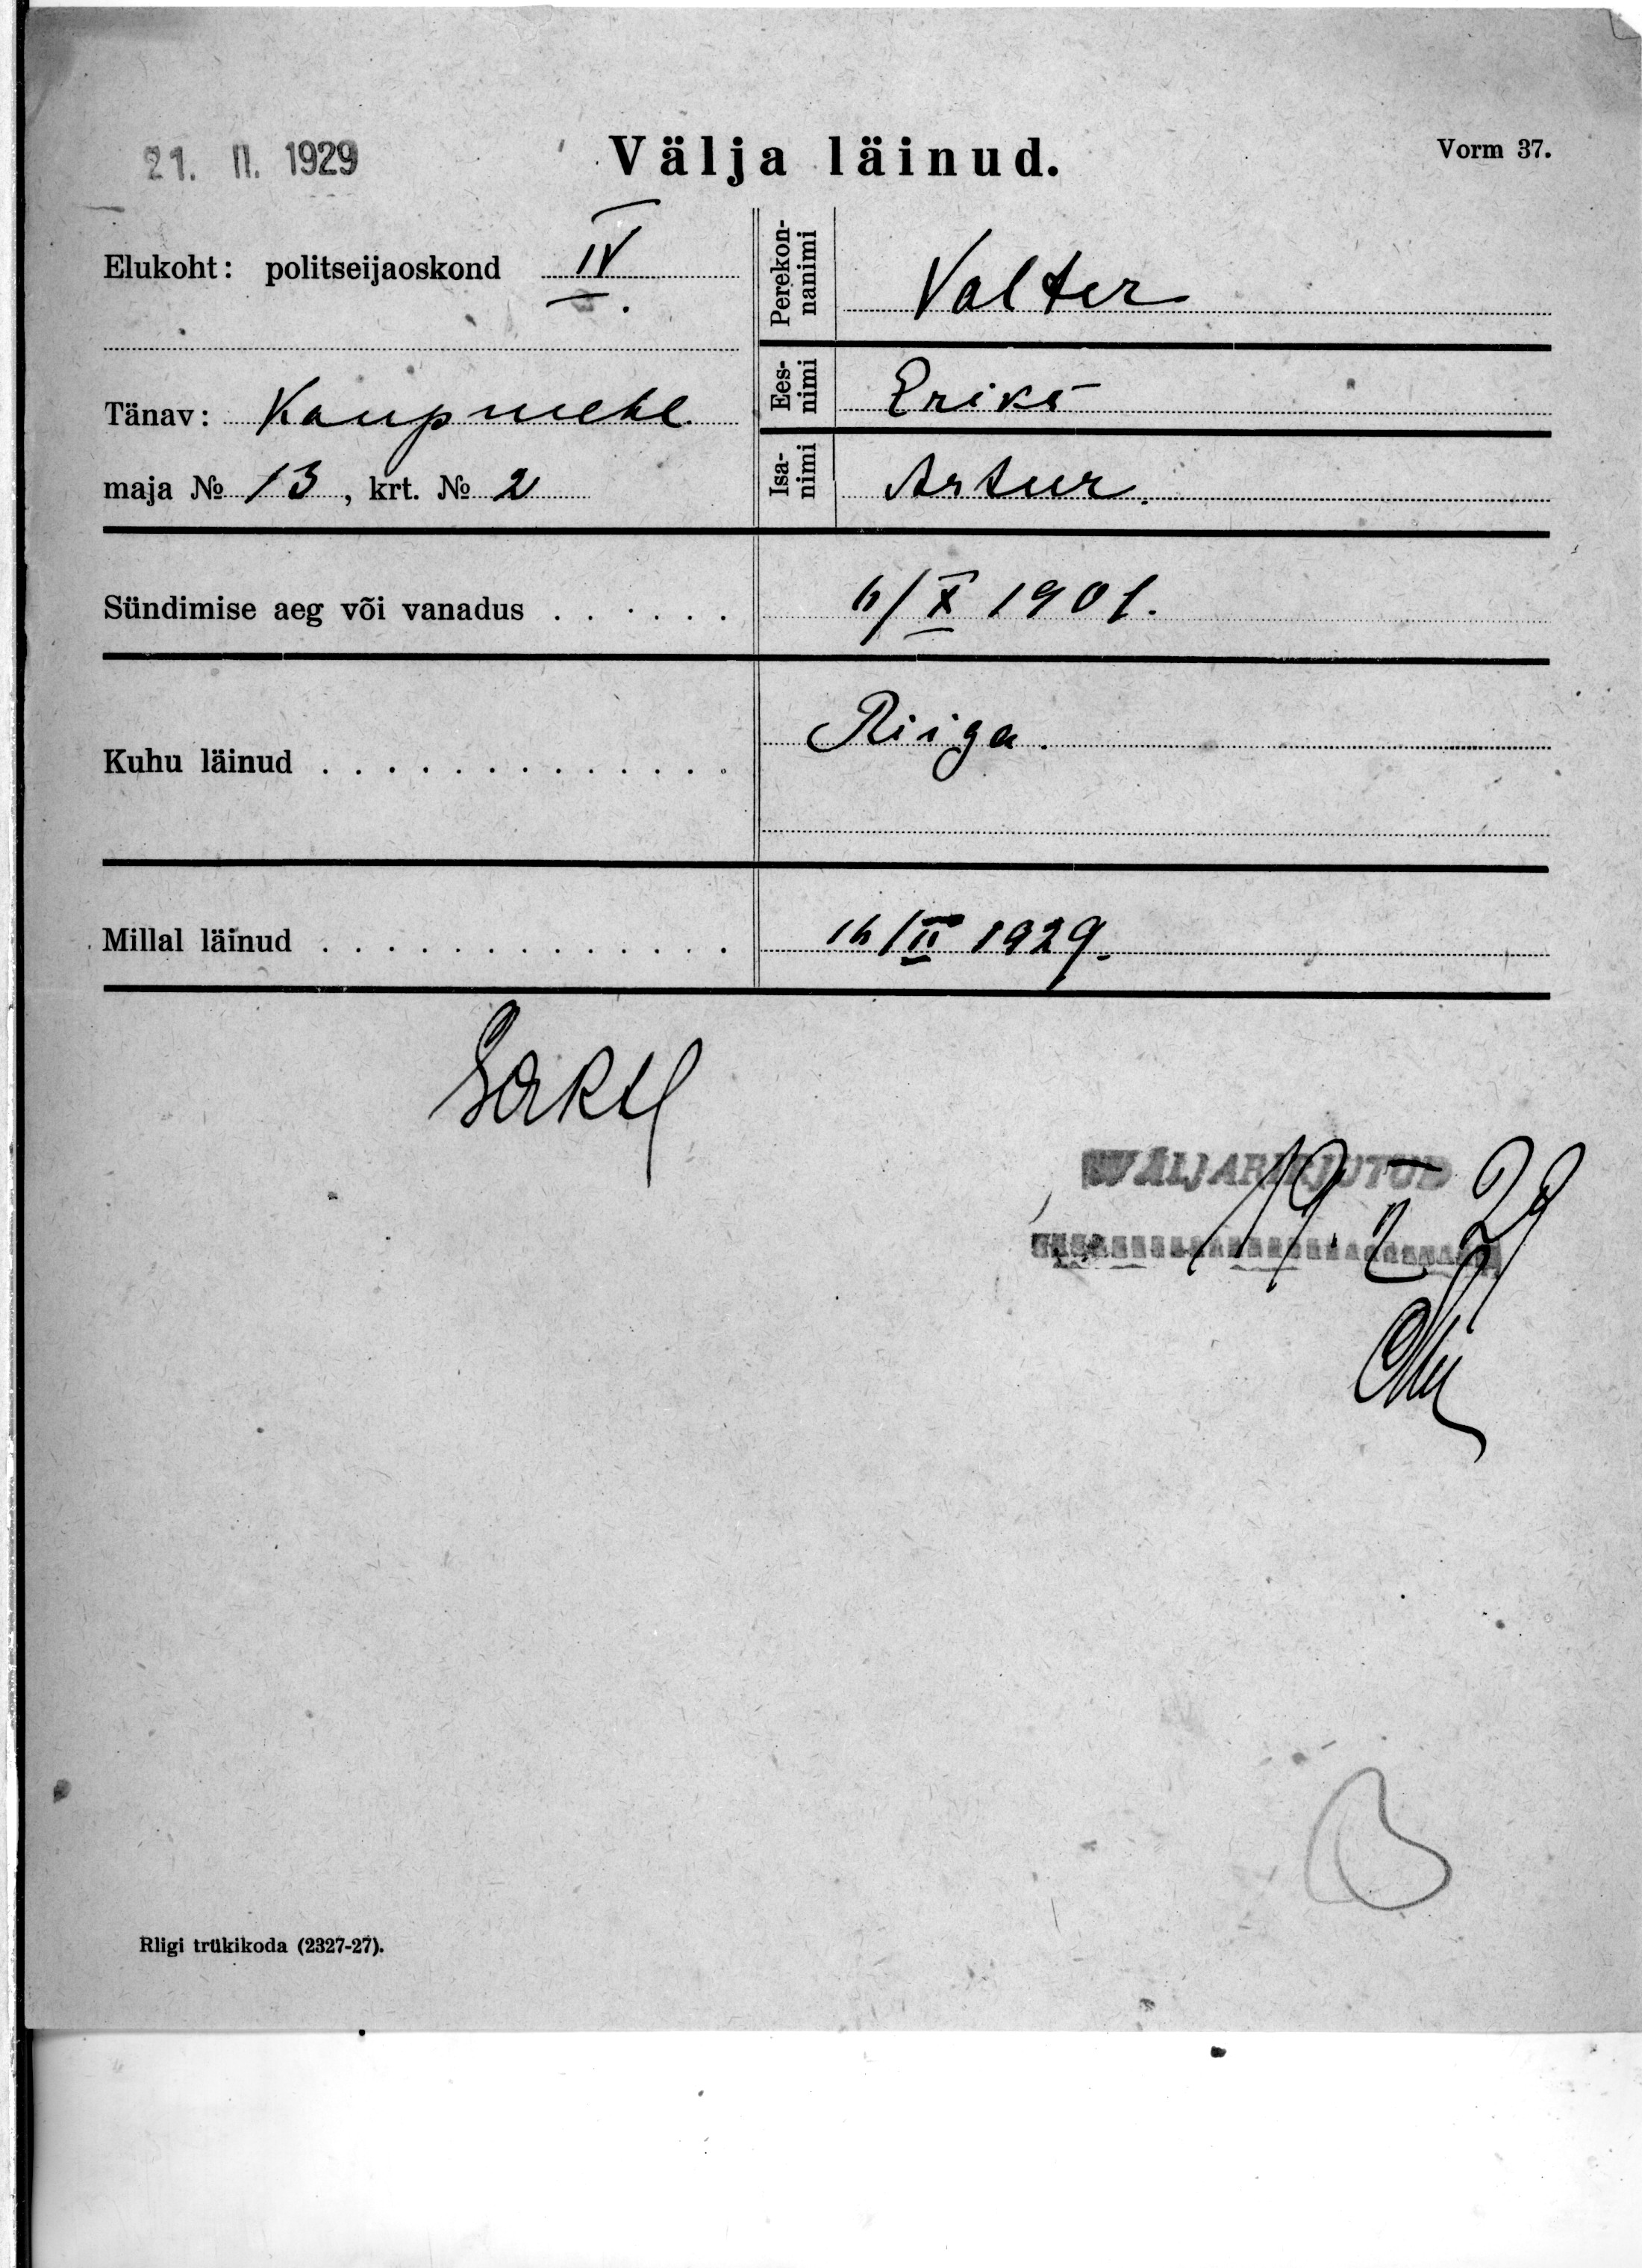 21. II. 1929
Välja läinud.
Vorm 37.
Elukoht: politseijaoskond IV.
Tänav: Kaupmehe
maja № 13, krt. № 2
Perekon-
nanimi
Valter
Ees-
nimi
Eriks
Isa-
nimi
Artur.
Sündimise aeg või vanadus . . . . . . 6/X 1901.
Kuhu läinud . . . . . . . . . . . . . Riiga.
Millal läinud . . . . . . . . . . . . . 16/II 1929.
WÄLJAKIRJUTUD
19. II 29
Riigi trükikoda (2327-27).